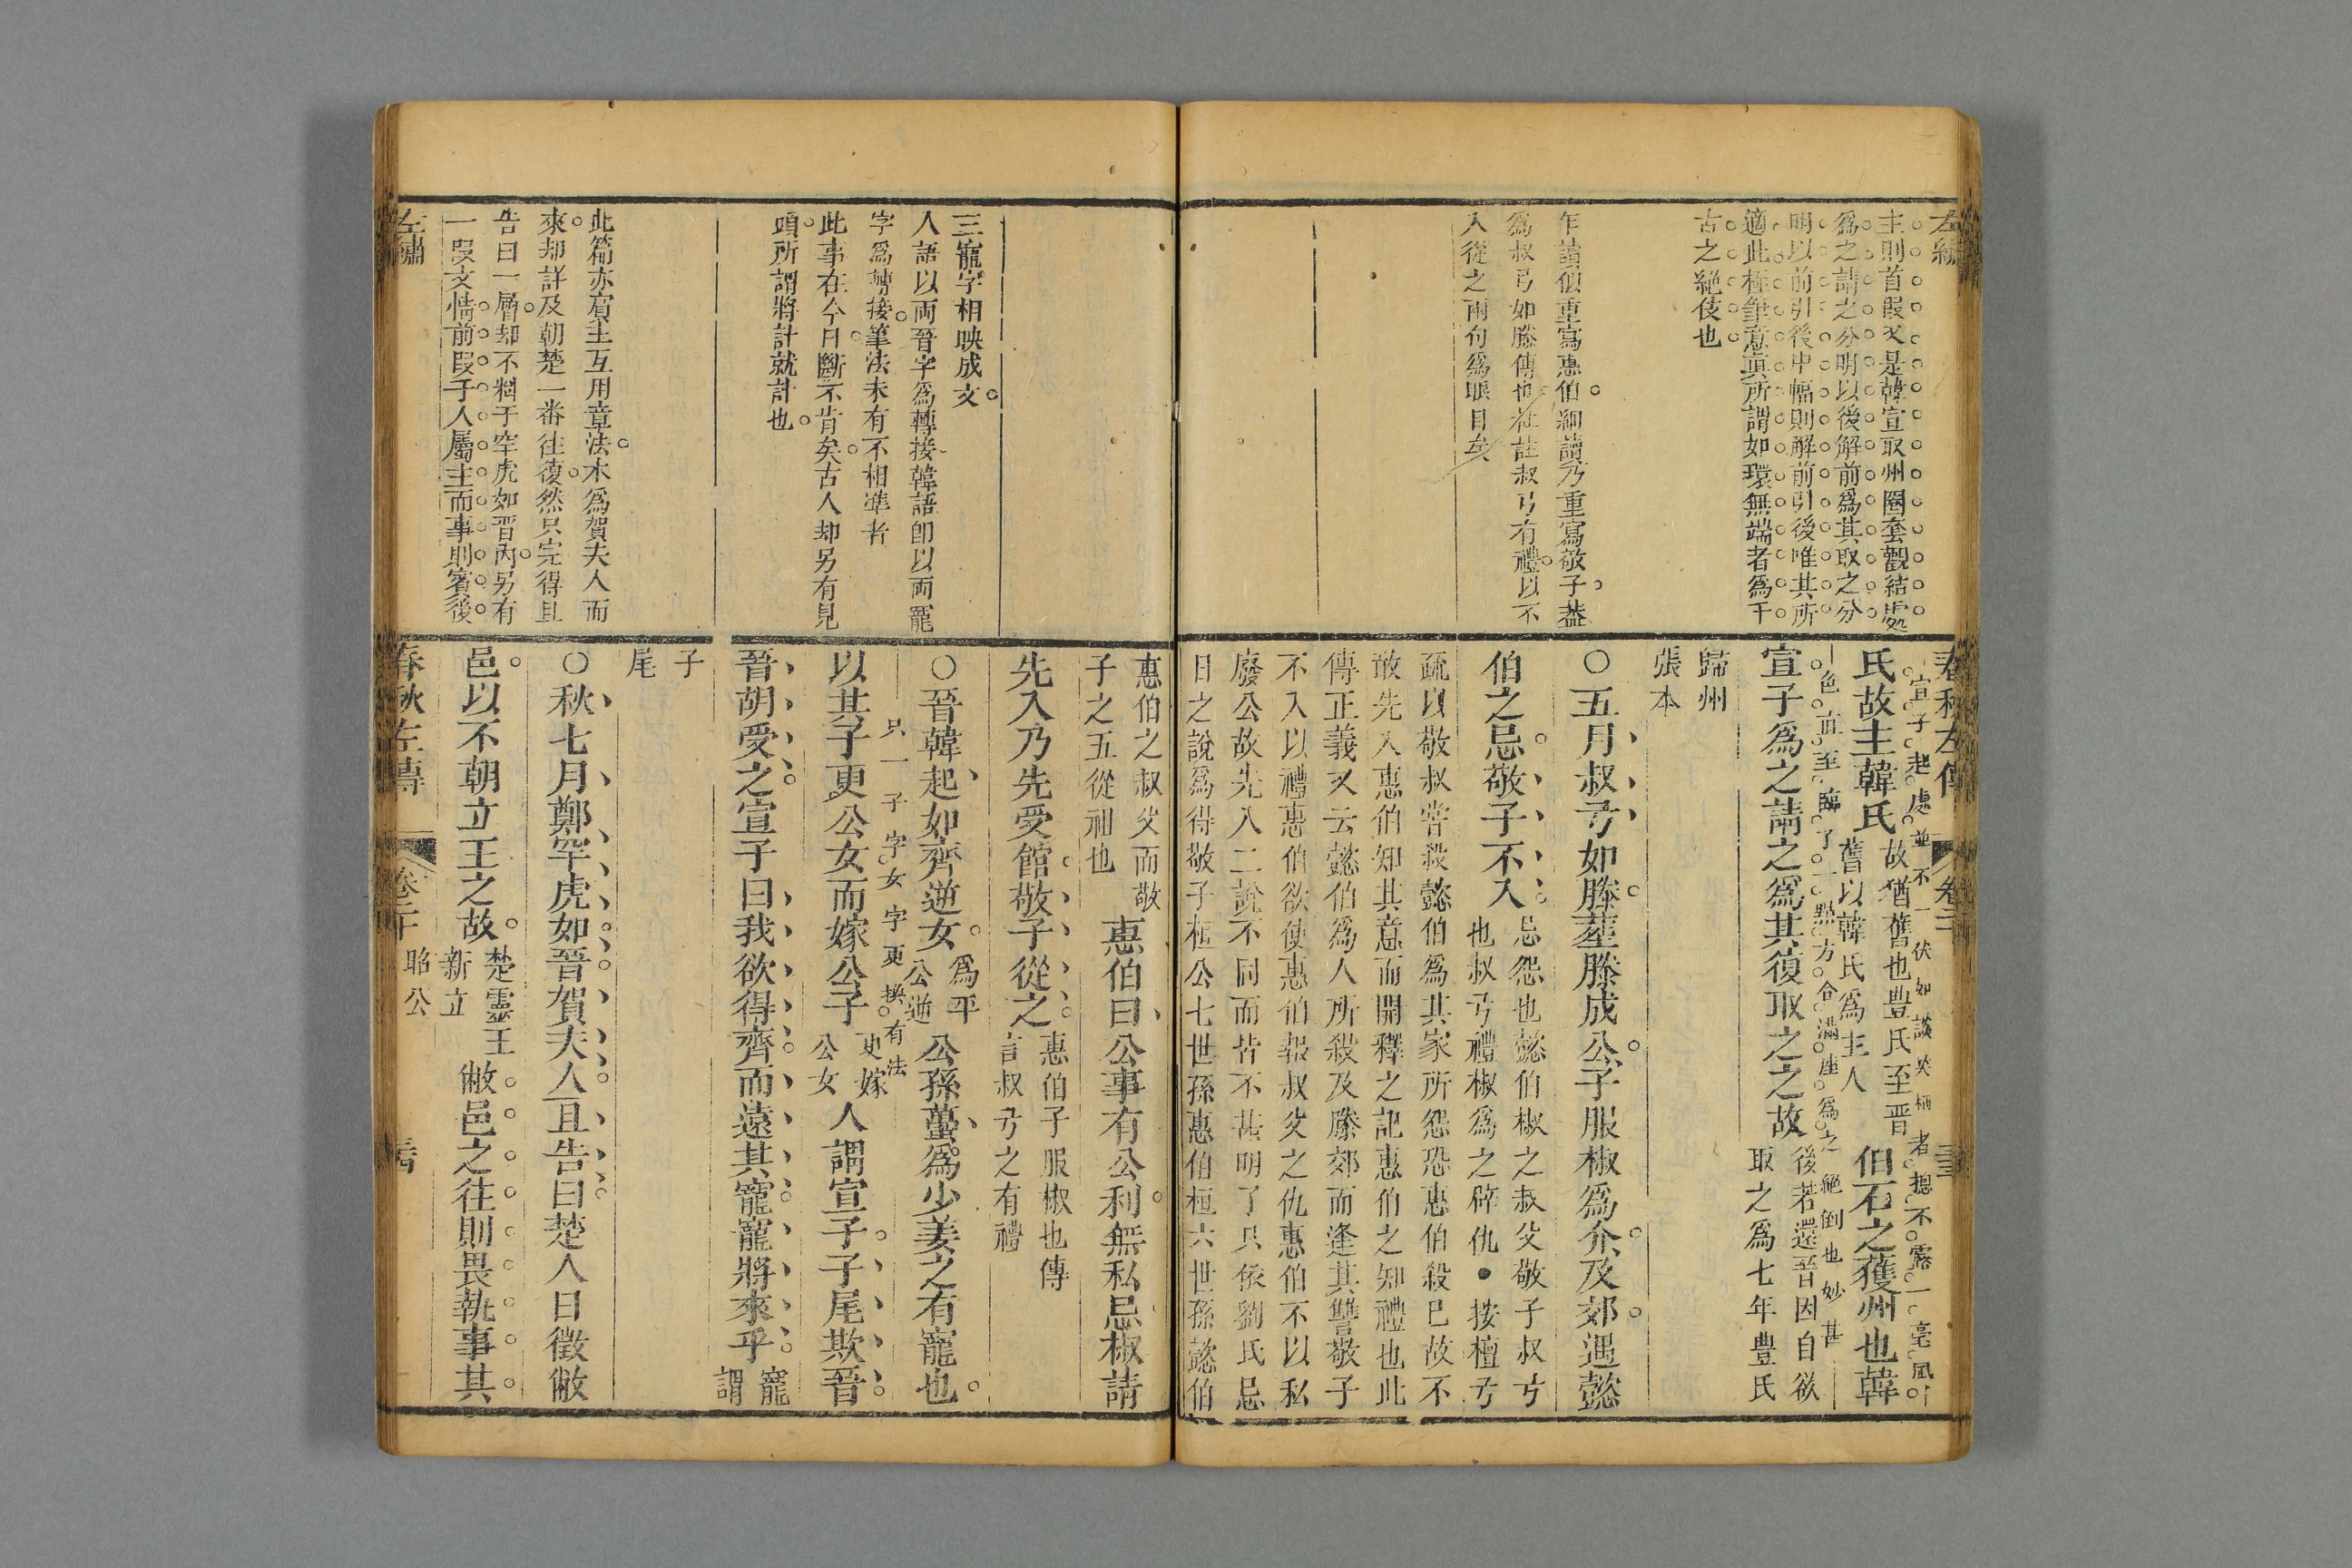 左繡
主則首叚又是韓宣取州圈套觀結處
爲之請之分明以後解前爲其取之分
明以前引後中幅則解前引後唯其所
適此種筆意真所謂如環無端者爲千
古之絕伎也
乍讀似重寫惠伯細讀乃重寫敬子葢
爲叔弓如滕傳也杜註叔弓有禮以不
入從之兩句爲眼目矣
春秋左傳
卷二
宣子起處並不一伏如談笑
者摠不露一毫風
氏故主韓氏
故猶舊也豊氏至晉
舊以韓氏爲主人
伯石之獲州也韓
色直至臨了一點方合滿座爲之絕倒也妙甚
宣子爲之請之爲其復取之之故
後若還晉因自欲
取之爲七年豊氏
歸州
張本
〇五月叔弓如滕葬滕成公子服椒爲介及郊遇懿
伯之忌敬子不入
忌怨也懿伯椒之叔父敬子叔弓
也叔弓禮椒爲之辟仇●按檀弓
疏以敬叔嘗殺懿伯爲其家所怨恐惠伯殺已故不
敢先入惠伯知其意而開釋之記惠伯之知禮也此
傳正義又云懿伯爲人所殺及滕郊而逢其讐敬子
不入以禮惠伯欲使惠伯報叔父之仇惠伯不以私
廢公故先入二說不同而皆不甚明了只依劉氏忌
日之說爲得敬子桓公七世孫惠伯桓六世孫懿伯
三寵字相映成文
人語以兩晉字爲轉接韓語卽以兩寵
字爲轉接筆法未有不相準者
此事在今日斷不肯矣古人却另有見
頭所謂將計就計也
此篇亦賓主互用章法本爲賀夫人而
來却詳及朝楚一番往復然只完得且
告曰一層却不料于罕虎如晉內另有
一吳文情前叚于人屬主而事則賓後
左繡
惠伯之叔父而敬
子之五從祖也
惠伯曰公事有公利無私忌椒請
先入乃先受館敬子從之
惠伯子服椒也傳
言叔弓之有禮
〇晉韓起如齊逆女
爲平
公逆
公孫蠆爲少姜之有寵也
只一子字女字更換有法
以其子更公女而嫁公子
更嫁
公女
人謂宣子子尾欺晉
晉胡受之宣子曰我欲得齊而遠其寵寵將來乎
寵
謂
子
尾
〇秋七月鄭罕虎如晉賀夫人且告曰楚人日徵敝
邑以不朝立王之故
楚靈王
新立
敝邑之往則畏執事其
春秋左傳
卷二十
昭公